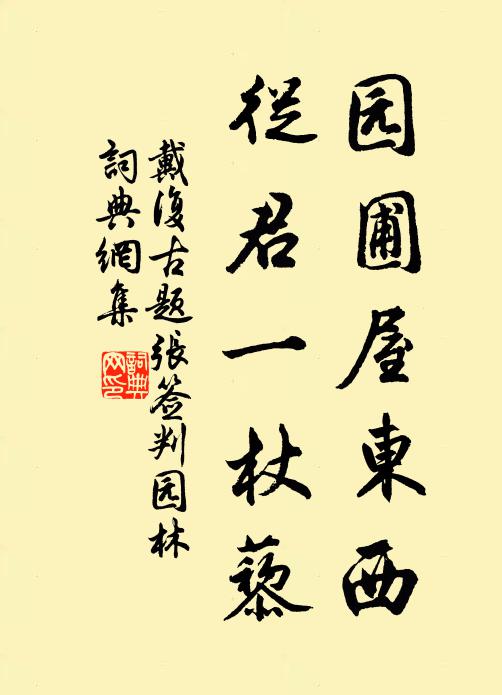 园圃屋東西
從君一杖藜
戴復古题張签判园林
詞典網集
詞典网印